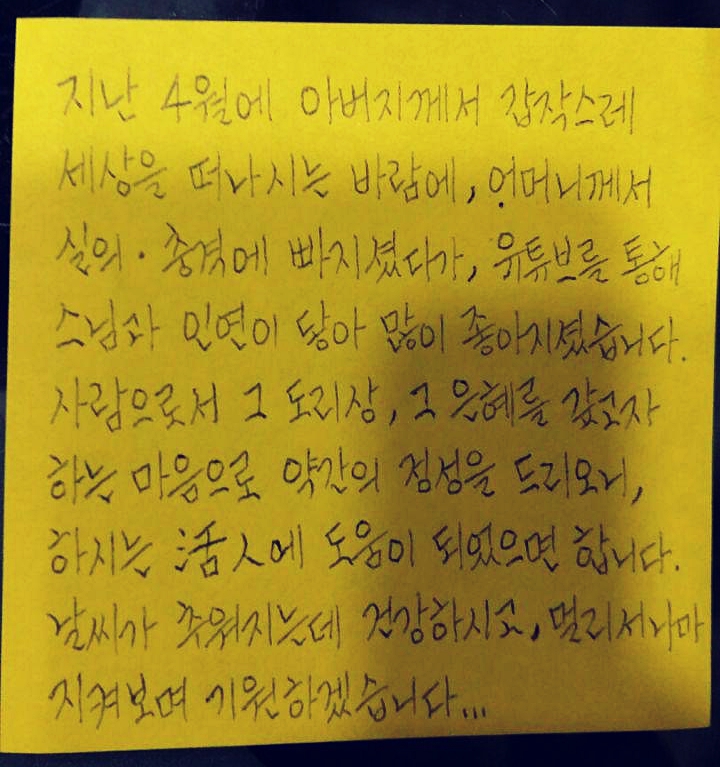 지난 4월에 아버지께서 갑작스레
세상을 떠나시는 바람에, 어머니께서
실의·충격에 빠지셨다가, 유튜브를 통해
스님과 인연이 닿아 많이 좋아지셨습니다.
사람으로서 그 도리상, 그 은혜를 갚고자
하는 마음으로 약간의 정성을 드리오니,
하시는 活人에 도움이 되었으면 합니다.
날씨가 추워지는데 건강하시고, 멀리서나마
지켜보며 기원하겠습니다...